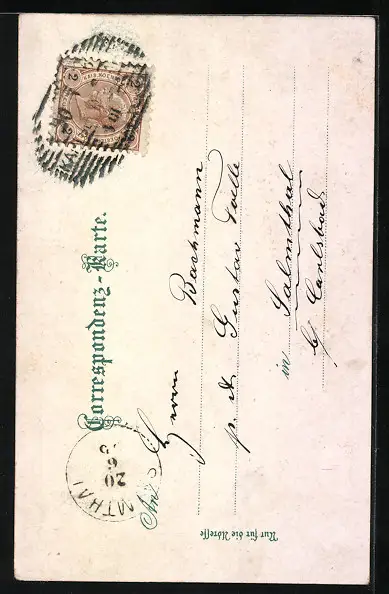 Correspondenz-Karte.
An Herrn Bachmann
p. ad. Gustav Tolle
in Salmthal
b/ Carlsbad
Nur für die Adresse
MTHAL
20
6
2
2